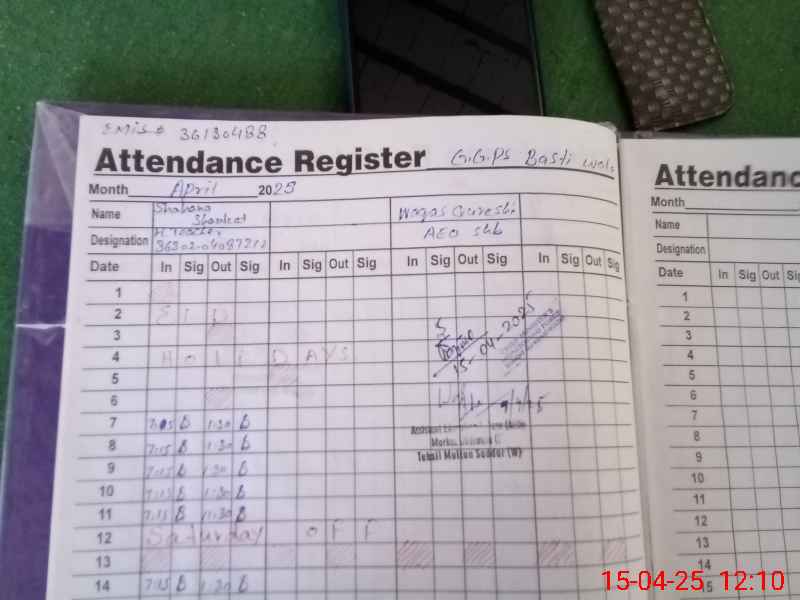 EMIS# 36130488
Attendance Register G.G.PS Basti
Month April 2025
Name Shabana Shaukat Waqas Qureshi
Designation H.Teacher AEO
Date In Sig Out Sig In Sig Out Sig In Sig Out Sig In Sig Out Sig
1
2 EID
3
4 HOLIDAYS
5
6
7 7:15 B 1:30 B
8 7:15 B 1:30 B
9 7:15 B 1:30 B
10 7:15 B 1:30 B
11 7:15 B 11:30 B
12 Saturday OFF
13
14 7:15 B 1:30 B
15-04-2025
Tehsil Multan Saddar (W)
Attendanc
Month
Name
Designation
Date In Sig Out Sig
1
2
3
4
5
6
7
8
9
10
11
12
13
14
15
15-04-25 12:10